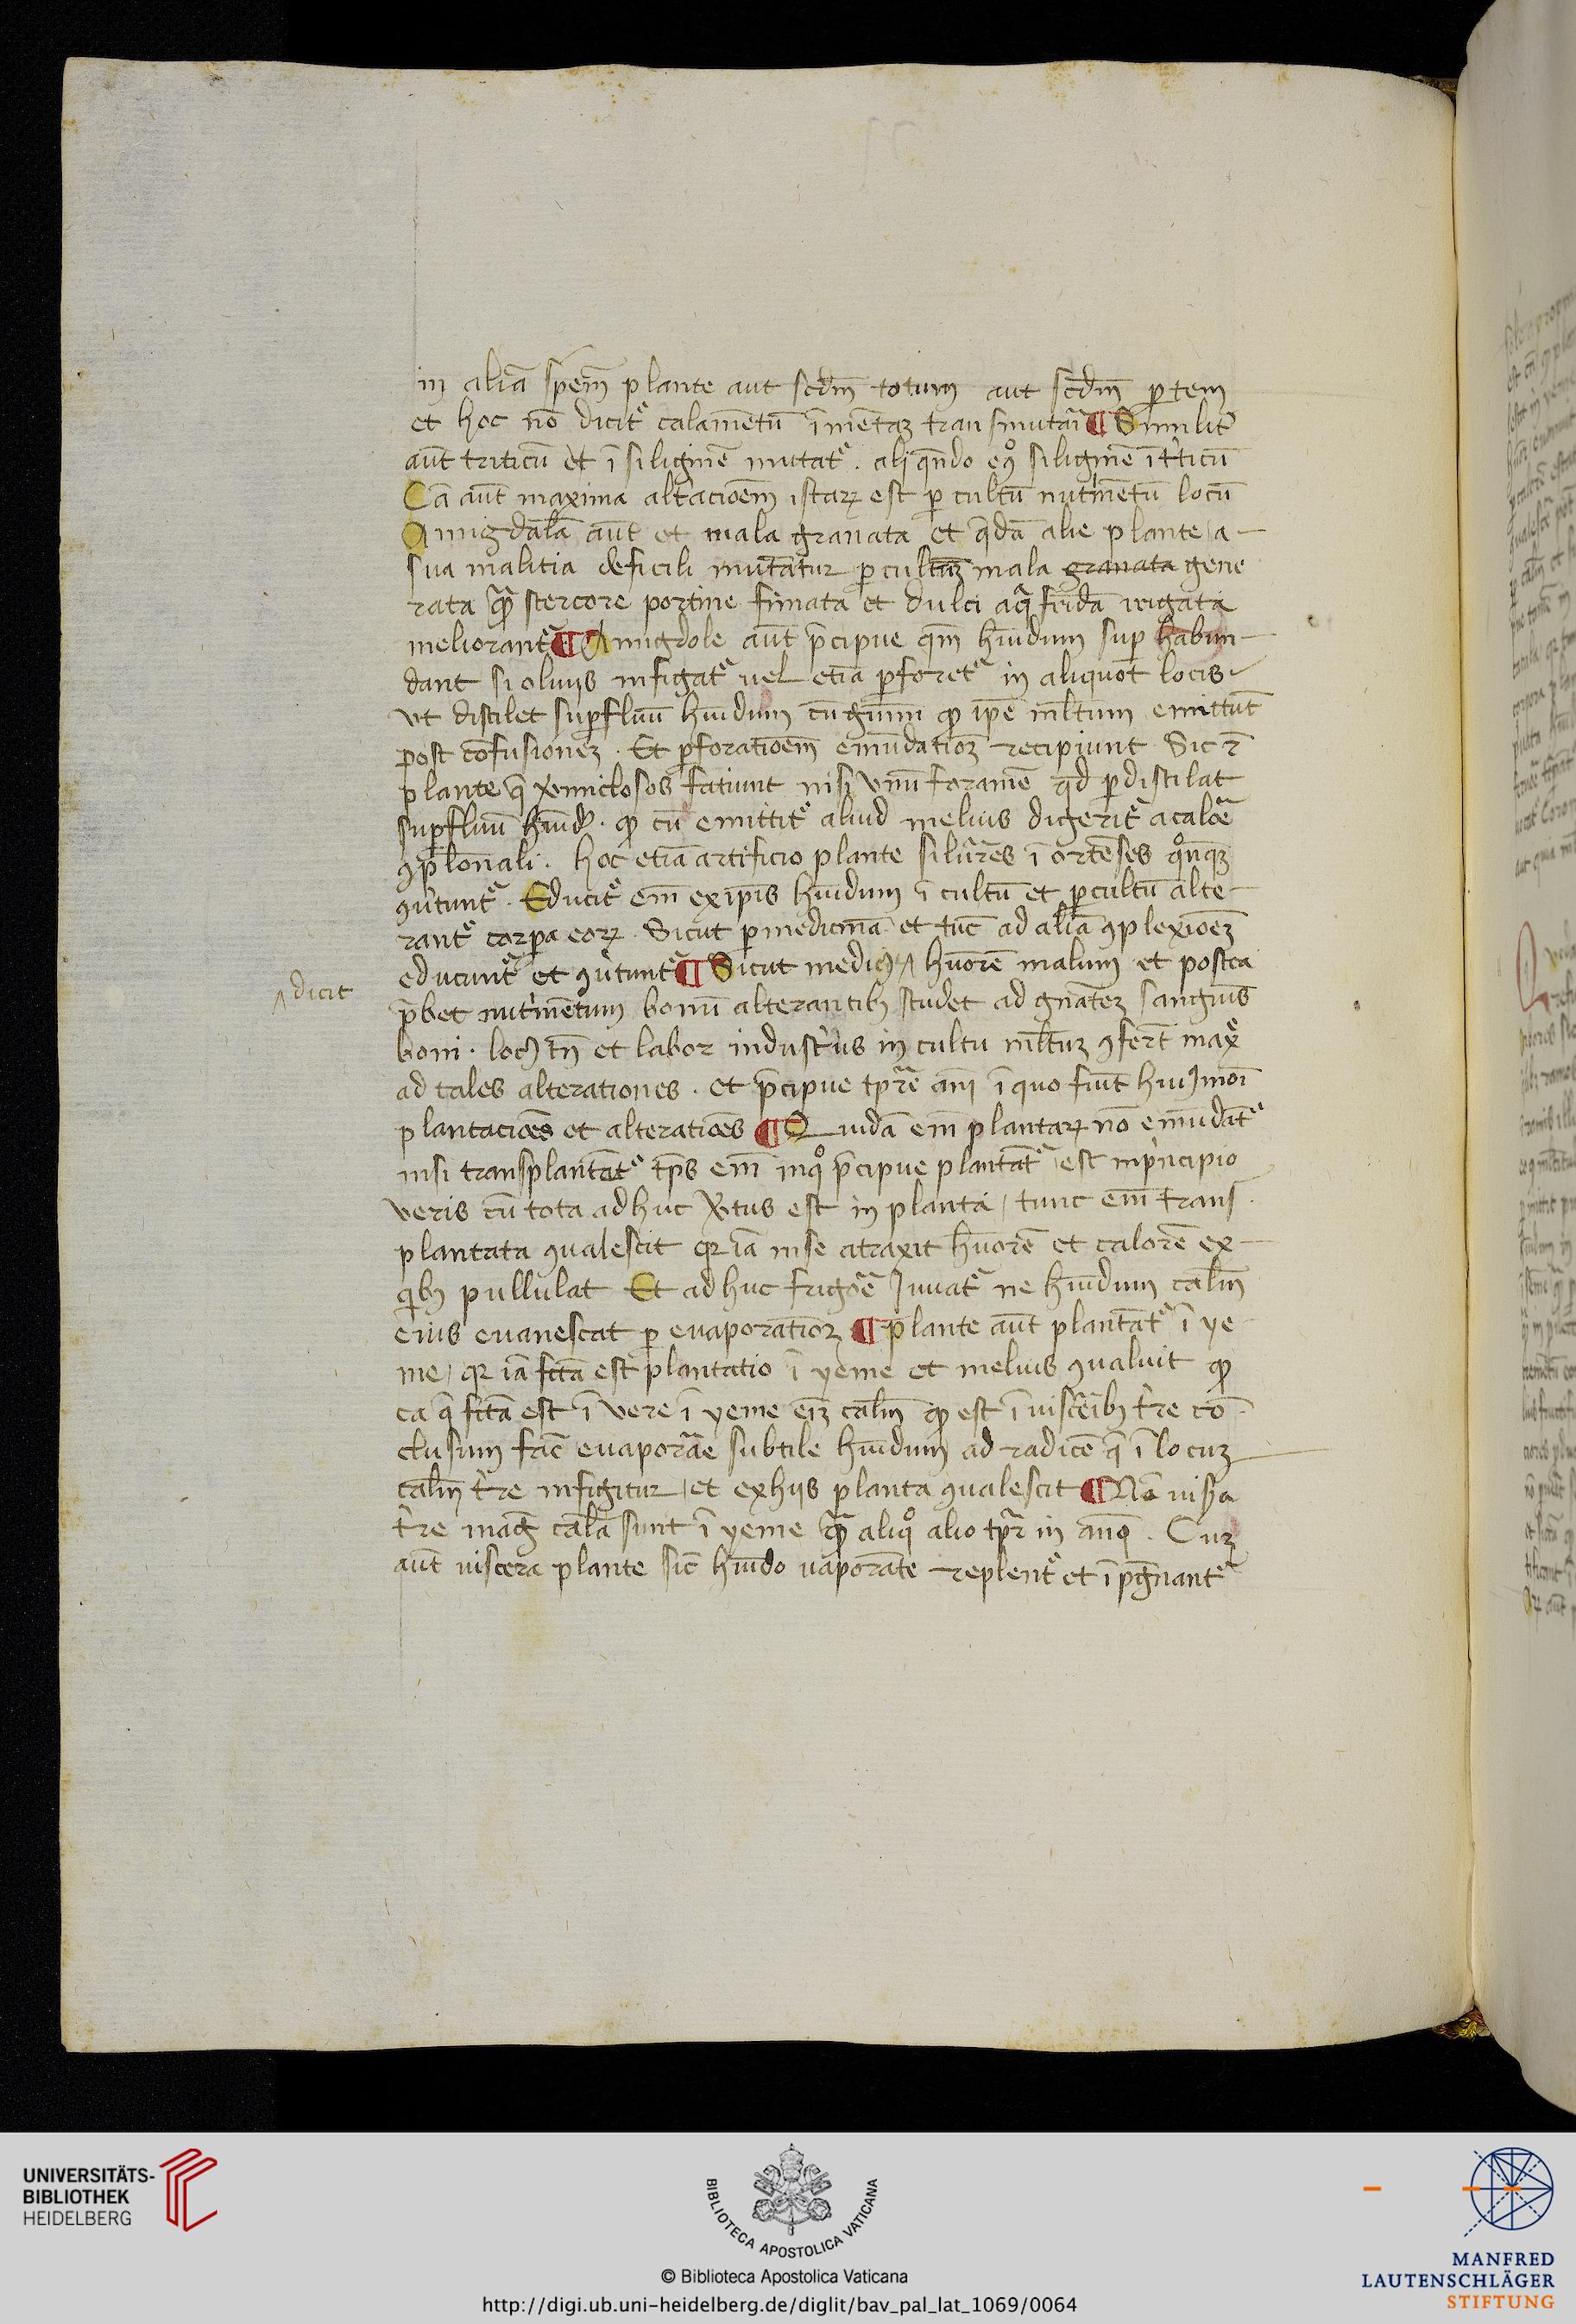 in aliā spēm plante aut scdm̄ totum aut scdm̄ ꝑtem
et hoc nō dicit᷑ calamētū ī mētaʒ transmutari ¶ Similit᷑
aūt triticū et ī siliginē mutat᷑ . aliqn̄do eꝯ siliginē ī t'ticū
Cā aūt maxima altacioēm istaꝝ est ꝑ cultū nutmētū locū
Amigdala aūt et mala granata et q̄dā alie plante a
sua malitia deficili mutātur ꝑ cultuʒ mala granata gene
rata qm̄ stercore porcine fimata et dulci aq̄ frida irigata
meliorant᷑ ¶ Amigdole aūt p̄cipue qm̄ hūidum suꝑ habun
dant si clauis infigat᷑ uel etiā ꝑforet᷑ in aliquot locis
ut distilet suꝑfluū hūidum cū gummi qꝫ ip̄e ml̄tum emittūt
post confusioneʒ . Et ꝑforatioēm emūdatiōʒ recipiunt Sic ī
plante q̄ v̓miclosos faciunt nisi vnū foramē qd̓ ꝑ distilat
suꝑfluū hūid̓ . qꝫ cū emittit᷑ aliud melius digerit᷑ a calōe
ꝯplōnali . hoc etiā artificio plante silūres ī ortēses qn̊qꝫ
ꝯu̓tunt᷑ . Educit᷑ em̄ ex ip̄is hūidum ī cultū et ꝑ cultū alte
rant᷑ corꝑa eoꝝ . Sicut ꝑ medicinā et tūc ad aliā ꝯplexioēʒ
educunt᷑ et ꝯu̓tunt᷑ ¶ Sicut medicꝰ ^ hūorē malum et postea
dicit
p̄bet nutmētum bonū alterantibꝫ studet ad gnatoēʒ sanguīs
boni . locꝰ tn̄ et labor industrius in cultu ml̄tuʒ ꝯfert max᷑
ad tales alterationes . et p̄cipue tꝑre anī ī quo fiūt huiꝰmoī
plantacioēs et alteratioēs ¶ Quidā em̄ plantaꝝ nō emūdāt᷑
nisi transplantāt᷑ tp̄s em̄ in qͦ p̄cipue plantāt᷑ est in p'ncipio
veris cū tota adhuc v̓tus est in planta / tunc em̄ trans
plantata ꝯualescit qꝛ iā in se atraxit hūorē et calorē ex
qibꝫ pullulat Et adhuc frigōe Juuat᷑ ne hūidum calm̄
eius euanescat ꝑ euaporatiōʒ ¶ plante aūt plantāt᷑ ī ye
me / qꝛ iā fcā est plantatio ī yeme et melius ꝯualuit qꝫ
ea q̄ fcā est ī vere ī yeme eiʒ calm̄ qꝫ est ī uiscēibꝫ tre cō
clusum facit euaporāe subtile hūidum ad radicē q̄ ī locuʒ
calm̄ tre infigitur / et ex hijs planta ꝯualescit ¶ Nā uisͣa
tre mag̓ calā sunt ī yeme qm̄ aliqͦ alio tꝑe in anō . Cuʒ
aūt uiscera plante sic hūido uaporāte replent᷑ et īpgnant᷑
UNIVERSITÄTS-
BIBLIOTHEK
HEIDELBERG
BIBLIOTECA APOSTOLICA VATICANA
© Biblioteca Apostolica Vaticana
http://digi.ub.uni-heidelberg.de/diglit/bav_pal_lat_1069/0064
MANFRED
LAUTENSCHLÄGER
STIFTUNG